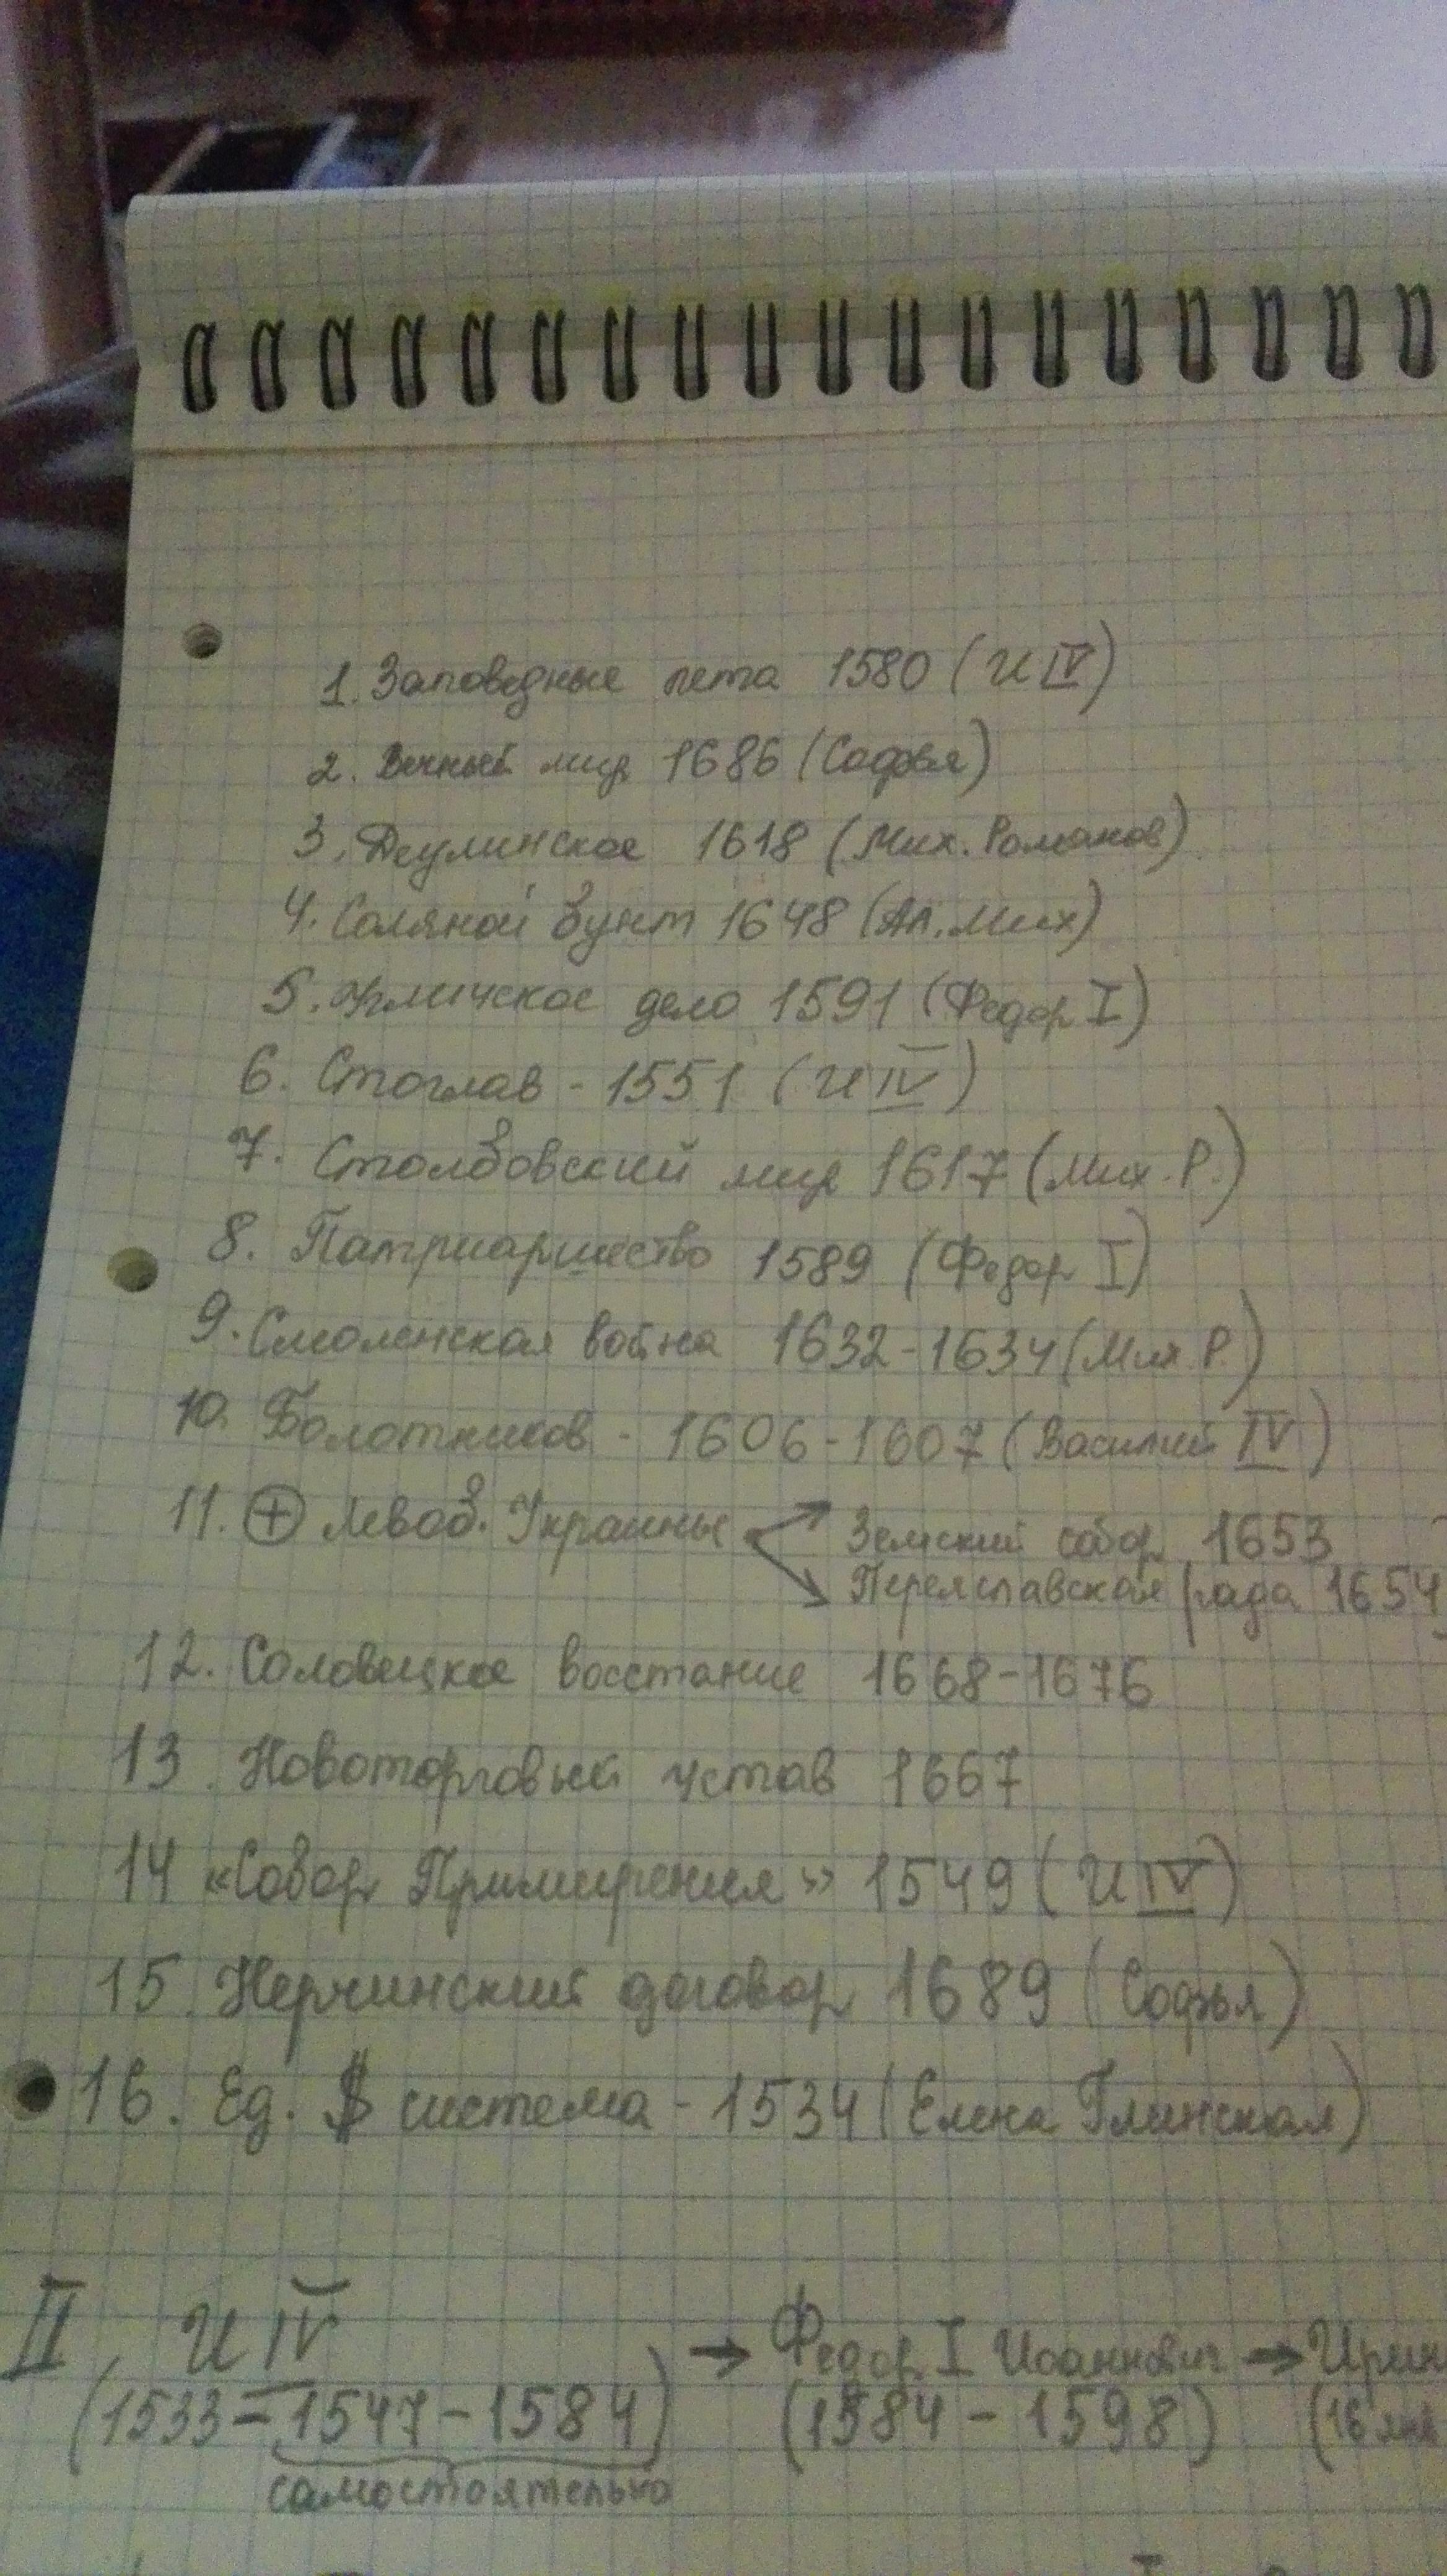 1. Заповедные лета 1580 (И IV)
2. Вечный мир 1686 (Софья)
3. Деулинское 1618 (Мих. Романов)
4. Соляной бунт 1648 (Ал. Мих)
5. Угличское дело 1591 (Федор I)
6. Стоглав - 1551 (И IV)
7. Столбовский мир 1617 (Мих. Р.)
8. Патриаршество 1589 (Федор I)
9. Смоленская война 1632-1634 (Мих. Р.)
10. Болотников - 1606-1607 (Василий IV)
11. ⊕ Левоб. Украины Земский собор 1653
Переяславская рада 1654
12. Соловецкое восстание 1668-1676
13. Новоторговый устав 1667
14 «Собор Примирения» 1549 (И IV)
15. Нерчинский договор 1689 (Софья)
16. Ед. $ система - 1534 (Елена Глинская)
II. И IV → Федор I Иоаннович →
(1533-1547-1584) (1584-1598) (16 янв
самостоятельно